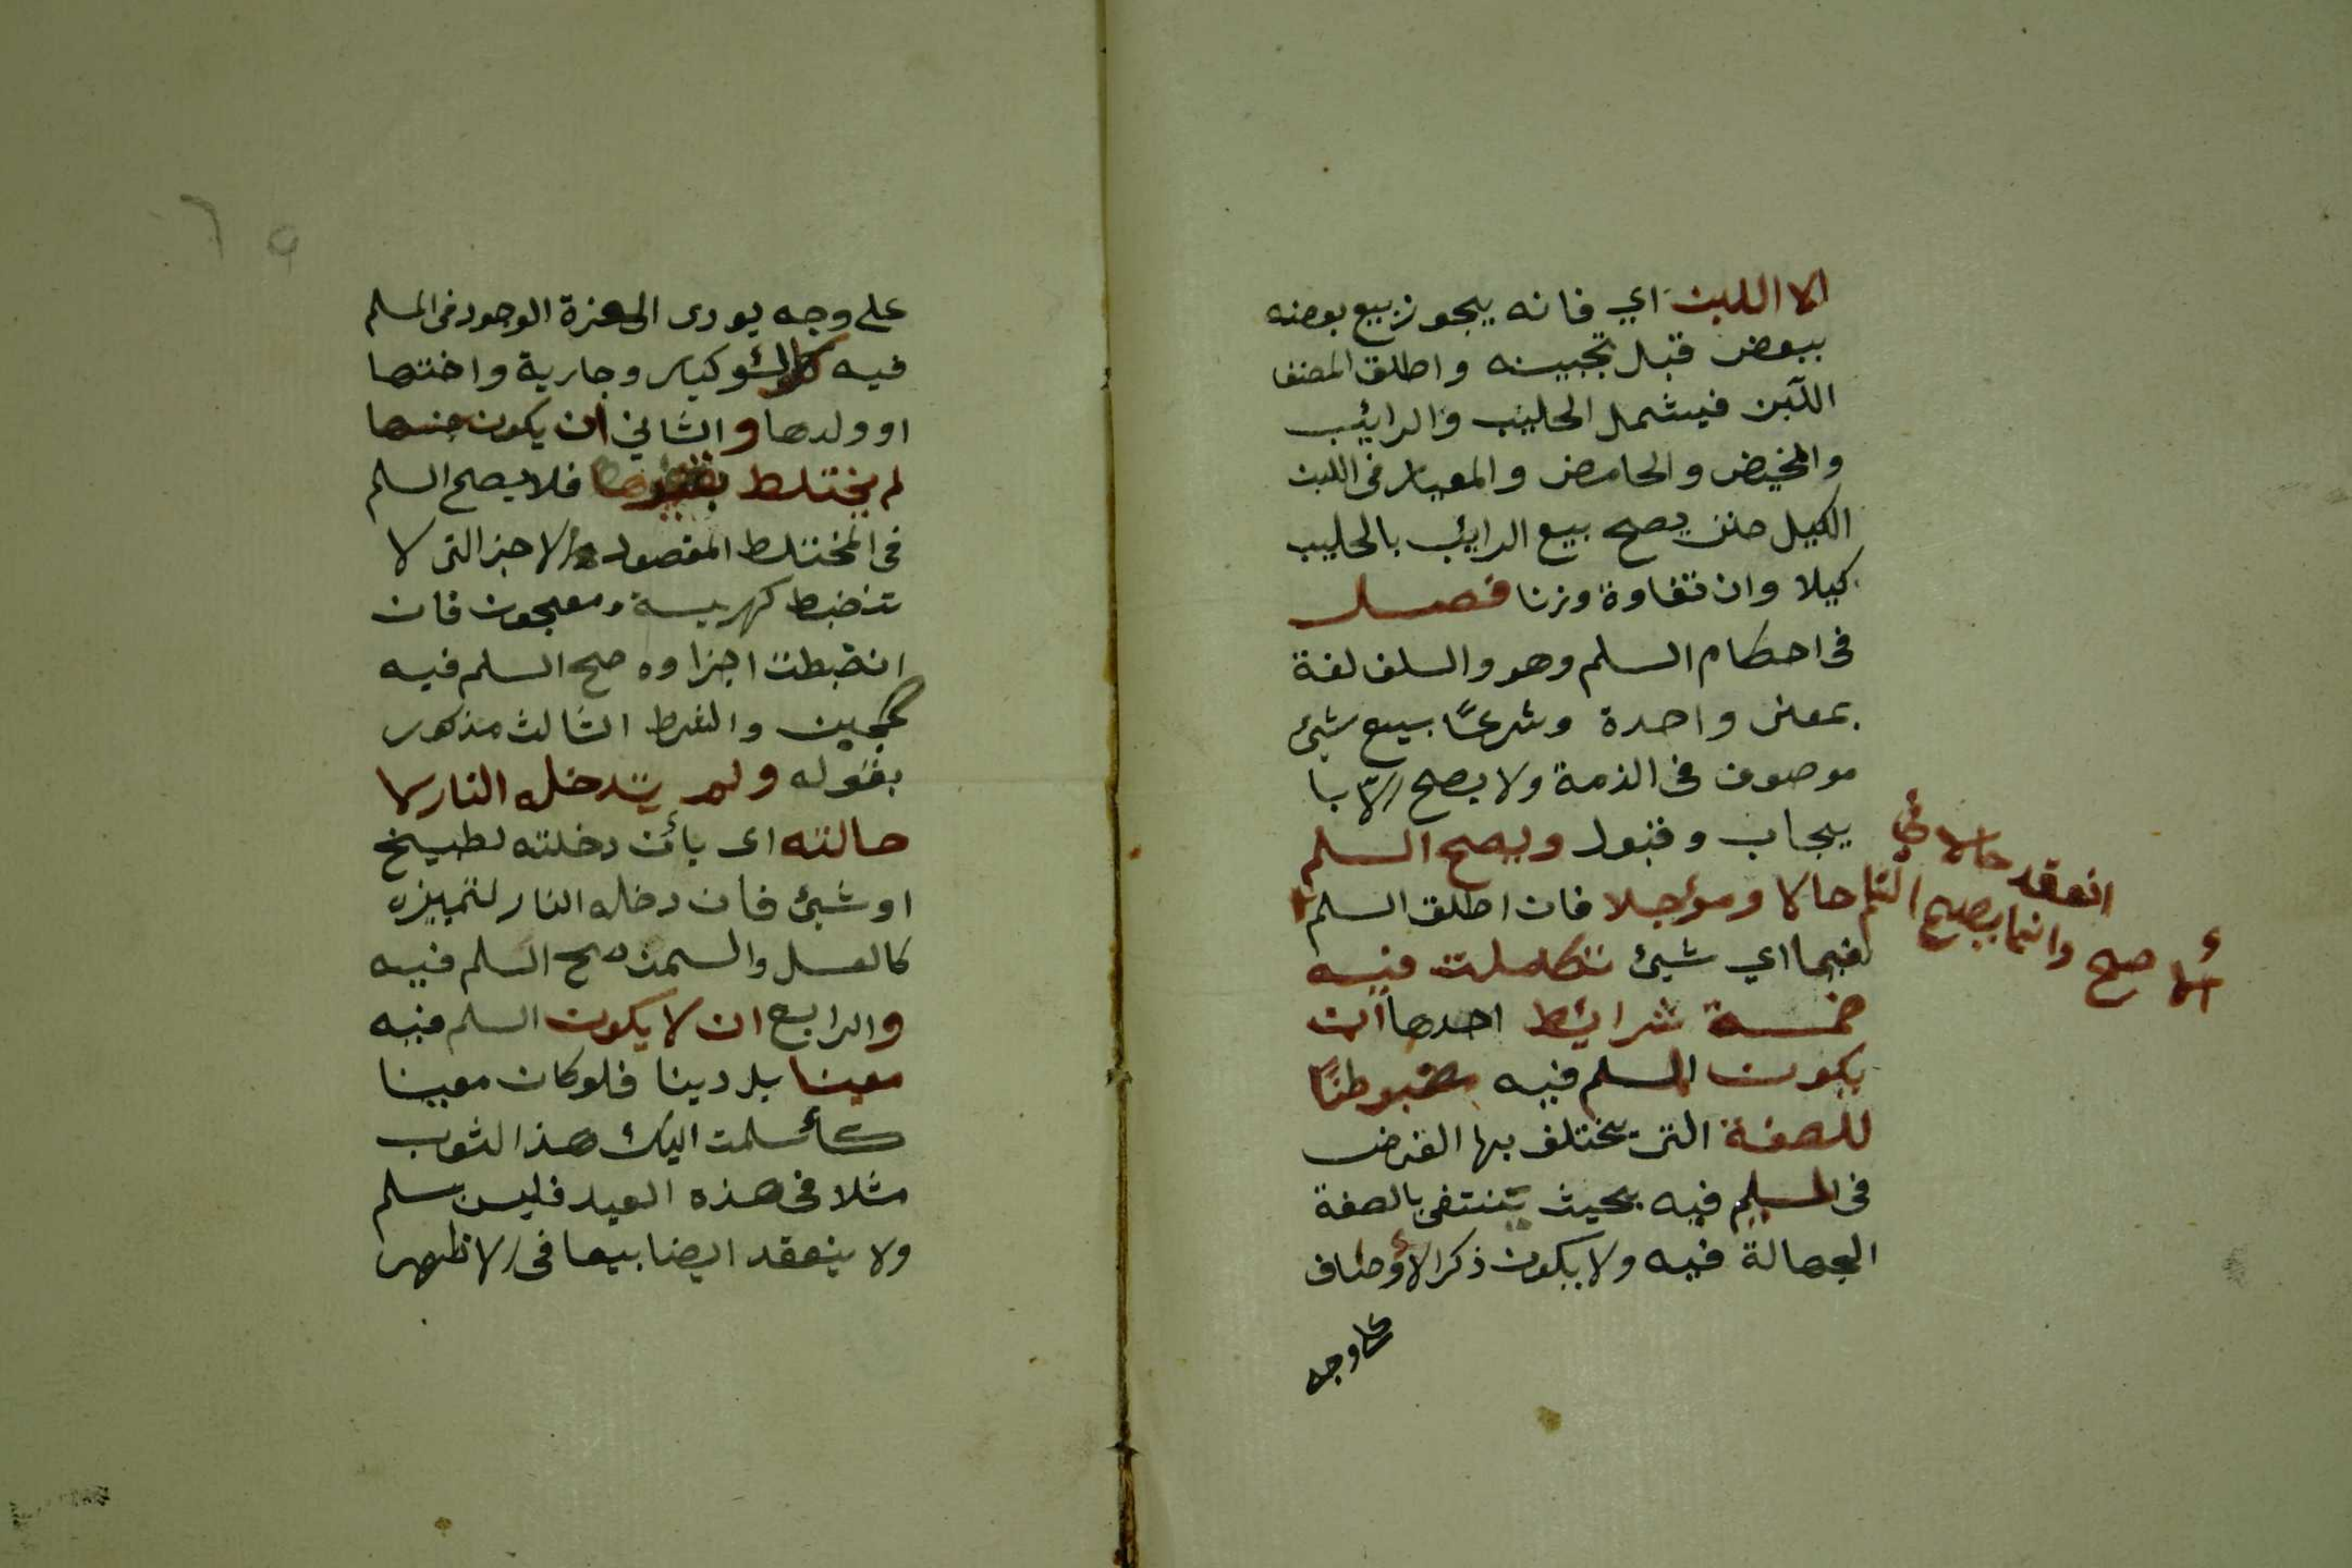 الا اللبن اي فانه يجوز بيع بعضه
ببعض قبل تجبينه واطلق المصنف
اللبن فيشمل الحليب والرايب
والمخيض والحامض والمعيار فى اللبن
الكيل حتى يصح بيع الرايب بالحليب
كيلا وان تفاوة وزنا فصل
فى احكام السلم وهو والسلف لغة
بمعنى واحدة وشرعًا بيع شيئ
موصوف فى الذمة ولا يصح الّا با
يجاب وقبول ويصح السلم
حالا ومؤجلا فان اطلق السلم
انعقد حالا في
الأصح وانما يصح السلم
فيما اي شيئ تكاملت فيه
خمسة شرايط احدها ان
يكون المسلم فيه مضبوطًا
للصفة التى يختلف بها الغرض
فى المسلم فيه بحيث ينتفى بالصفة
الجهالة فيه ولا يكون ذكر الأوصاف
على وجه
على وجه يودى الى عزة الوجود فى المسلم
فيه كلؤلؤ كبار وجارية واختها
او ولدها والثاني ان يكون جنسها
لم يختلط بغيره فلا يصح السلم
فى المختلط المقصود الاجزا التى لا
تنضبط كهريسة ومعجون فان
انضبطت اجزاوه صح السلم فيه
كجبن والشرط الثالث مذكور
بقوله ولم يتدخله النار لا
حالته اى بأن دخلته لطبيخ
او شيئ فان دخله النار لتمييزه
كالعسل والسمن صح السلم فيه
والرابع ان لا يكون السلم فيه
معينا بل دينا فلو كان معينا
كأسلمت اليك هذا الثوب
مثلا فى هذه العبد فليس بسلم
ولا ينعقد ايضا بيعا فى الاظهر